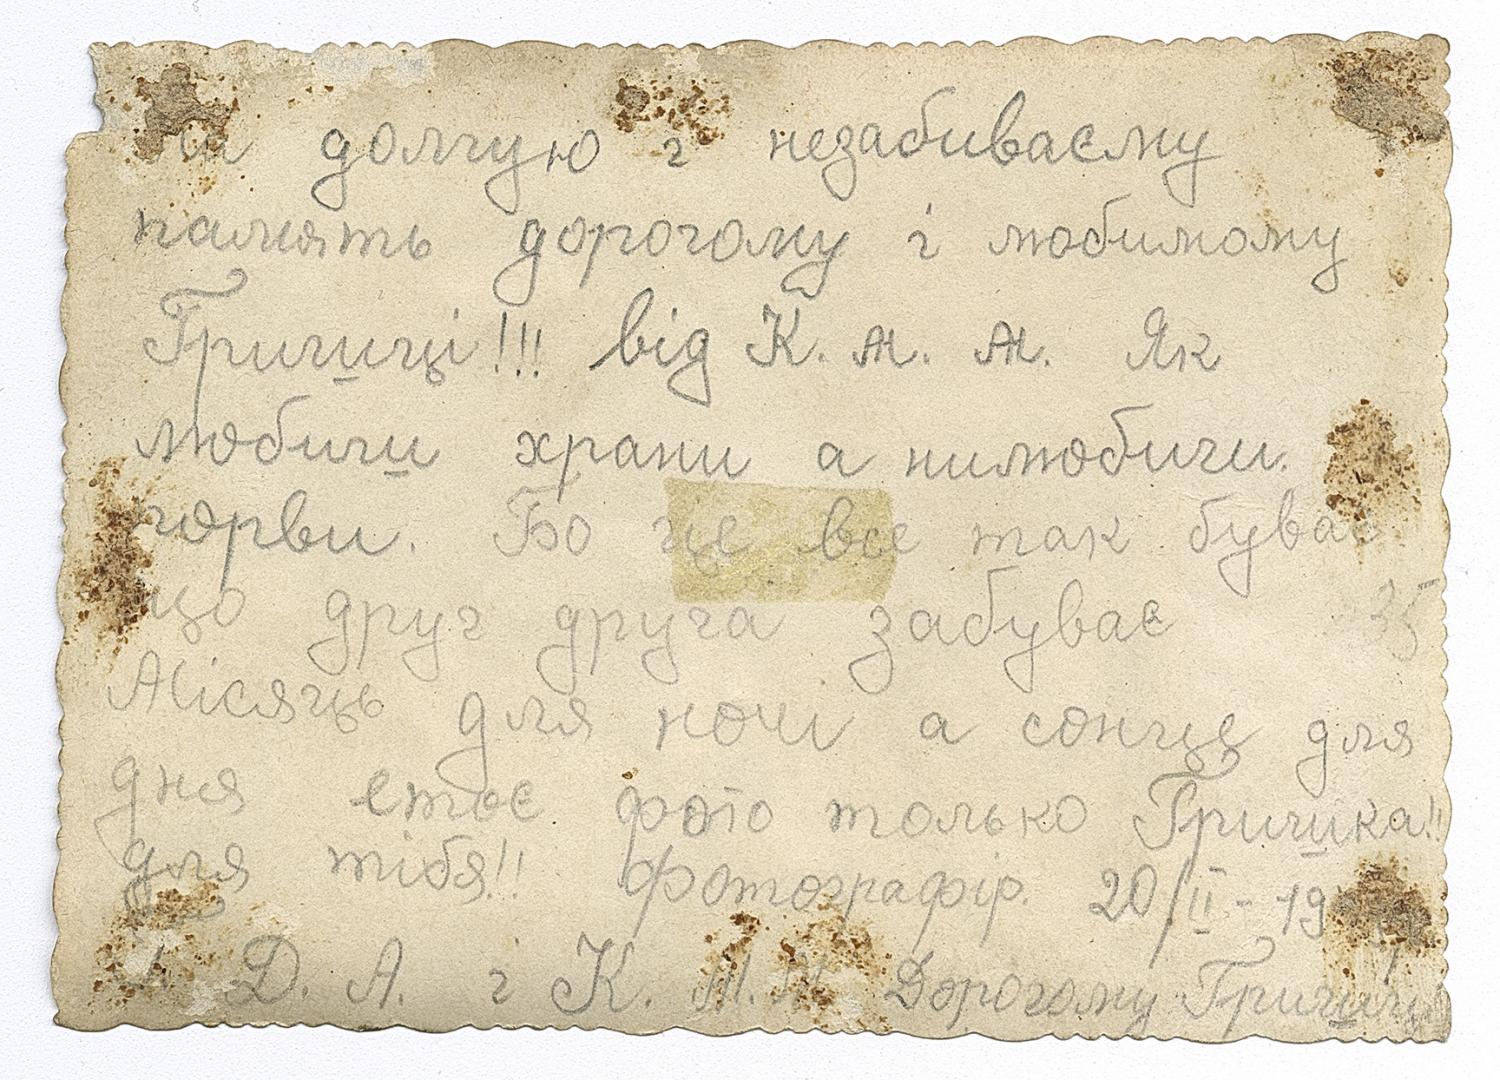 На долгую і незабиваєму
память дорогому і любимому
Гришиці!!! від К. М. М. Як
любиш храни а нилюбиш.
порви. Бо це все так буває
що друг друга забуває 35
Місяць для ночі а сонце для
дня етоє фото только Гришка!!
для тібя!! Фотографір. 20/ІІ - 19
Д. А. і К. М. М. Дорогому Гришиці